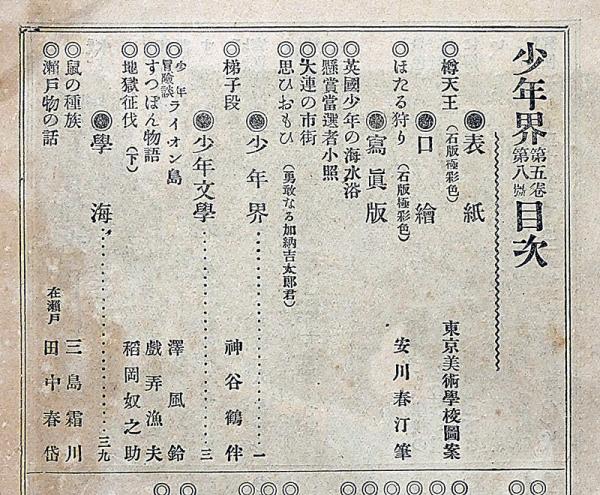 少年界 第五巻第八號 目次
◉表紙
◎樽天王(石版極彩色) 東京美術學校圖案
◉口繪
◎ほたる狩り(石版極彩色) 安川春汀筆
◉寫眞版
◎英國少年の海水浴
◎懸賞當選者小照
◎大連の市街
◎思ひおもひ(勇敢なる加納吉太郎君)
◉少年界 一
◎梯子段 神谷鶴伴
◉少年文學 三
◎少年冒險談ライオン島 澤風鈴
◎すつぽん物語 戲弄漁夫
◎地獄征伐(下) 稻岡奴之助
◉學海 三九
◎鼠の種族 三島霜川
◎瀨戸物の話 在瀨戸 田中春岱